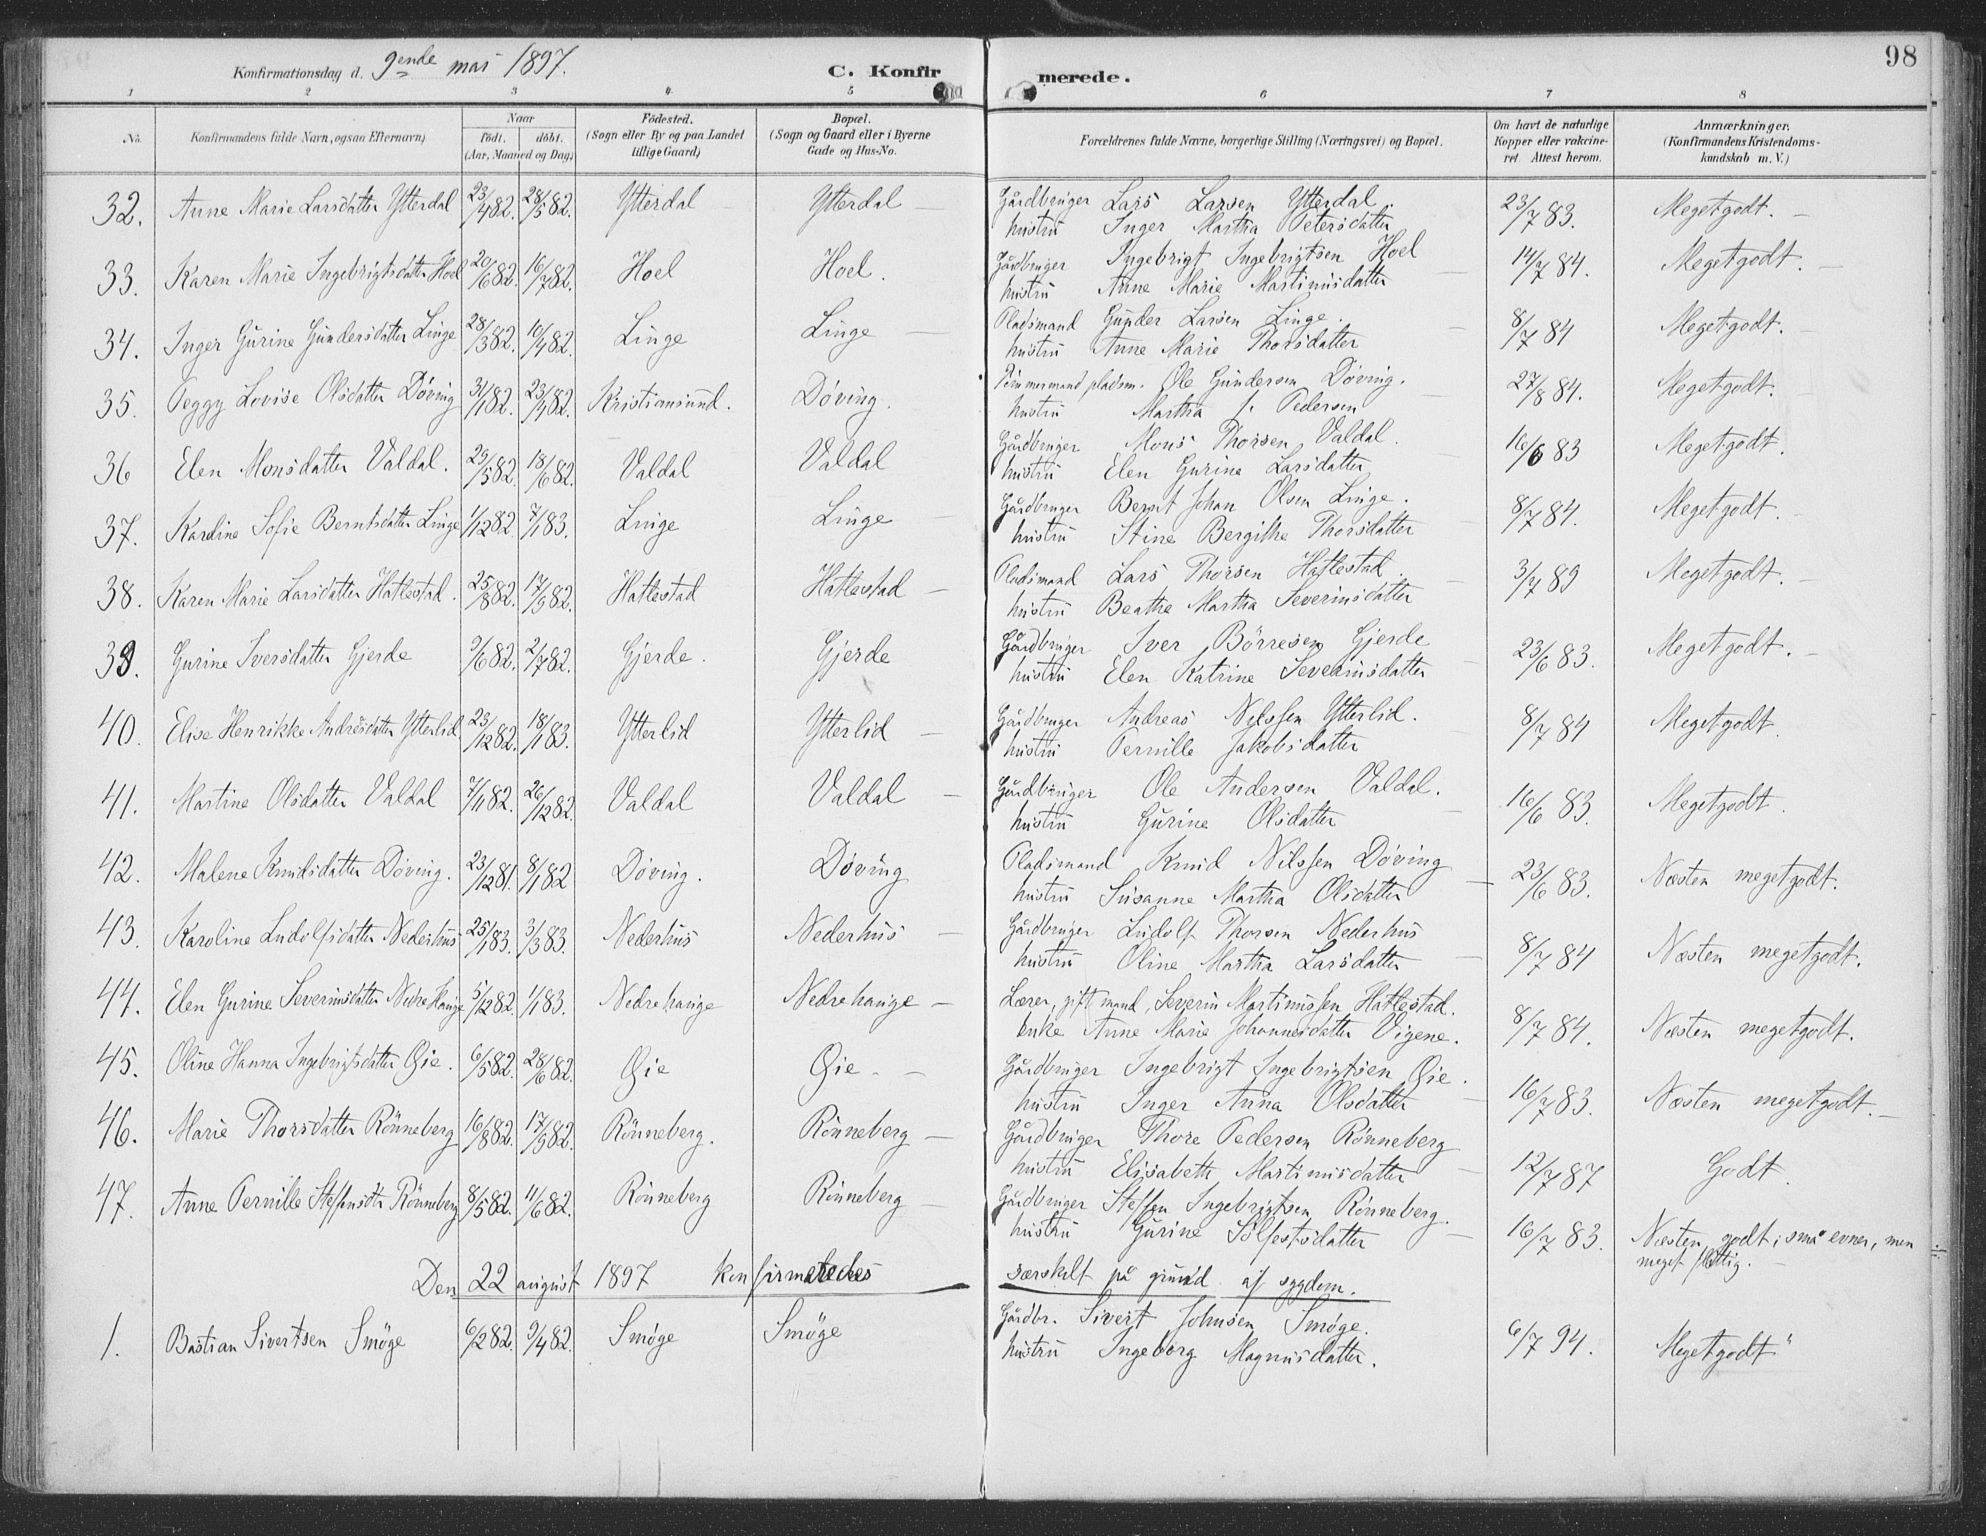 98
Konfirmationsdag d. 9ende mai 1897. C. Konfirmerede.
1 2 3 4 5 6 7 8
No. Konfirmandens fulde Navn, ogsaa Efternavn) Naar født. døbt. (Aar, Maaned og Dag) Fødested. (Sogn eller By og paa Landet tillige Gaard) Bopæl. (Sogn og Gaard eller i Byerne Gade og Hus-No. Forældrenes fulde Navne, borgerlige Stilling (Næringsvei) og Bopæl. Om havt de naturlige Kopper eller vakcineret. Attest herom. Anmærkninger. (Konfirmandens Kristendomskundskab m. V.)
32. Anne Marie Larsdatter Ytterdal 23/4 82. 28/5 82. Ytterdal Ytterdal Gårdbruger Lars Larsen Ytterdal. 23/7 83. Meget godt.
hustru Inger Martha Petersdatter
33. Karen Marie Ingebrigtsdatter Hoel 20/6 82. 16/7 82. Hoel Hoel. Gårdbruger Ingebrigt Ingebrigtsen Hoel 14/7 84. Meget godt.
hustru Anne Marie Martinusdatter
34. Inger Gurine Gundersdatter Linge 28/3 82. 10/4 82. Linge Linge Pladsmand Gunder Larsen Linge. 8/7 84 Meget godt.
hustru Anne Marie Thorsdatter
35. Peggy Lovise Olsdatter Döving 31/1 82. 23/4 82. Kristiansund. Döving. Tömmermand pladsm. Ole Gundersen Döving. 27/8 84. Meget godt.
hustru Martha f. Pedersen
36 Elen Monsdatter Valdal. 29/5 82. 18/6 82. Valdal Valdal Gårdbruger Mons Thorsen Valdal. 16/6 83 Meget godt.
hustru Elen Gurine Larsdatter
37. Kardine Sofie Berntsdatter Linge 1/12 82 7/1 83. Linge Linge Gårdbruger Bernt Johan Olsen Linge. 8/7 84. Meget godt.
hustru Stine Bergithe Thorsdatter
38. Karen Marie Larsdatter Hatlestad. 25/8 82. 17/9 82. Hatlestad Hatlestad Pladsmand Lars Thorsen Hatlestad. 3/7 89 Meget godt.
hustru Beathe Martha Severinsdatter
39. Gurine Iversdatter Gjerde 9/6 82. 2/7 82. Gjerde. Gjerde Gårdbruger Iver Börresen Gjerde 23/6 83. Meget godt.
hustru Elen Katrine Severinsdatter
40. Elise Henrikke Andreasdatter Ytterlid 23/12 82. 18/1 83. Ytterlid Ytterlid Gårdbruger Andreas Nilssen Ytterlid. 8/7 84 Meget godt.
hustru Pernille Jakobsdatter
41. Martine Olsdatter Valdal 7/11 82. 26/12 82. Valdal Valdal Gårdbruger Ole Andersen Valdal. 16/6 83. Meget godt.
hustru Gurine Olsdatter
42. Malene Knudsdatter Döving. 23/12 81. 8/1 82 Döving. Döving Pladsmand Knud Nilssen Döving 23/6 83. Næsten meget godt.
hustru Susanne Martha Olsdatter
43. Karoline Ludolfsdatter Nederhus 25/1 83. 3/3 83. Nederhus Nederhus Gårdbruger Ludolf Thorsen Nederhus 8/7 84 Næsten meget godt.
hustru Oline Martha Larsdatter
44. Elen Gurine Severinsdatter Nedrehauge 5/12 82. 1/1 83. Nedrehauge Nedrehauge Lærer, gift mand, Severin Martinussen Hatlestad. 8/7 84. Næsten meget godt.
enke Anne Marie Johannesdatter Vigene.
45. Oline Hanna Ingebrigtsdatter Øie. 6/5 82. 28/6 82. Øie Øie. Gårdbruger Ingebrigt Ingebrigtsen Øie. 16/7 83. Næsten meget godt.
hustru Inger Anna Olsdatter
46. Marie Thorsdatter Rönneberg 16/8 82. 17/9 82. Rönneberg. Rönneberg Gårdbruger Thore Pedersen Rönneberg 12/7 87 Godt
hustru Elisabeth Martinusdatter
47. Anne Pernille Steffensdtr Rönneberg 8/5 82. 11/6 82. Rönneberg Rönneberg Gårdbruger Steffen Ingebrigtsen Rönneberg. 16/7 83. Næsten godt; små evner, men meget flittig.
hustru Gurine Sølfestsdatter
Den 22 august 1897 konfirmeredes særskilt på grund af sygdom.
1. Bastian Sivertsen Smöge 6/2 82. 9/4 82. Smöge Smöge Gårdbr. Sivert Johnsen Smöge. 6/7 94. Meget godt"
hustru Ingeborg Magnusdatter.